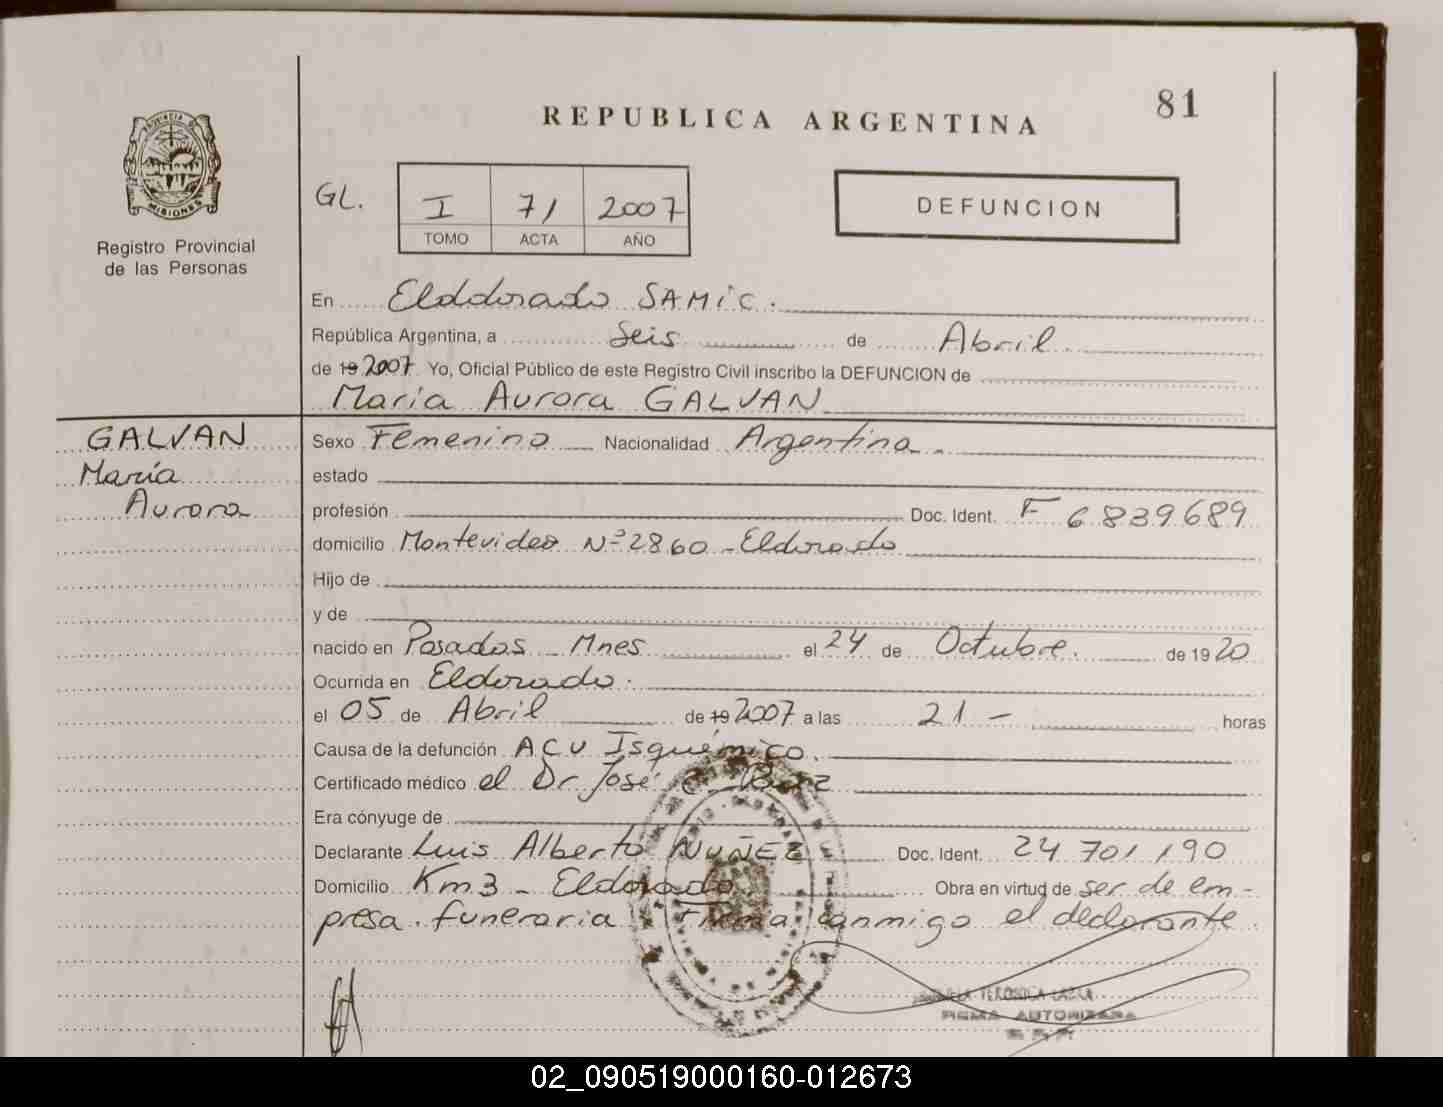 REPUBLICA ARGENTINA
81
PROVINCIA D
MISIONES
Registro Provincial
de las Personas
GL.
I 71 2007
TOMO ACTA AÑO
DEFUNCION
En Elddorado SAMIC.
República Argentina, a Seis de Abril
de 19 2007 Yo, Oficial Público de este Registro Civil inscribo la DEFUNCION de
María Aurora GALVAN
GALVAN
María
Aurora
Sexo Femenino Nacionalidad Argentina
estado
profesión Doc. Ident. F 6839689
domicilio Montevideo Nº 2860 - Eldorado
Hijo de
y de
nacido en Posadas - Mnes el 24 de Octubre. de 19 20
Ocurrida en Eldorado.
el 05 de Abril de 19 2007 a las 21 - horas
Causa de la defunción ACV Isquémico.
Certificado médico el Dr José C.
Era cónyuge de
Declarante Luis Alberto NUÑEZ Doc. Ident. 24 701 190
Domicilio Km3 - Eldorado. Obra en virtud de ser de em-
presa funeraria firma conmigo el declarante.
VERONICA
FIRMA AUTORIZADA
02_090519000160-012673